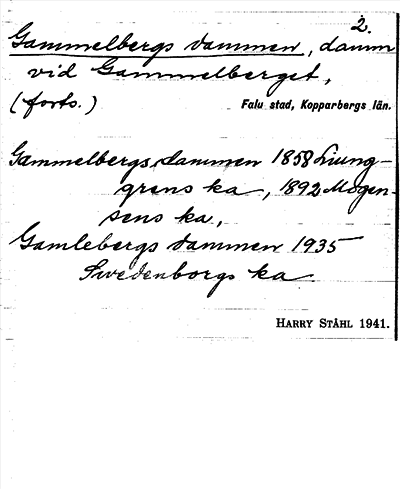 2.
Gammelbergsdammen, damm
vid Gammelberget,
(forts.) Falu stad, Kopparbergs län.
Gammelbergsdammen 1858 Liung-
grens ka, 1892 Mogen-
sens ka,
Gamlebergsdammen 1935
Swedenborgs ka
HARRY STÅHL 1941.